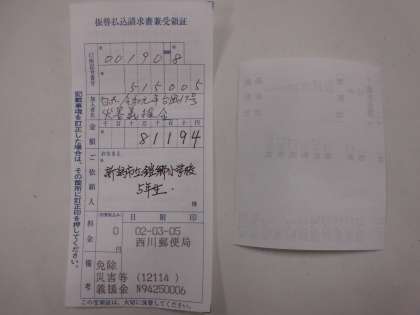 振替払込請求書兼受領証
口座記号番号
00190=8
515005
加入者名
日赤令和元年台風19号
災害義援金
金額
千百十万千百十円
81194
ご依頼人
おなまえ
新潟市立鎧郷小学校
5年生
様
料金
(消費税込み)
0
円
日附印
02-03-05
西川郵便局
備考
免除
災害等 (12114)
義援金 N94250006
この受領証は、大切に保管してください。
記載事項を訂正した場合は、その箇所に訂正印を押してください。